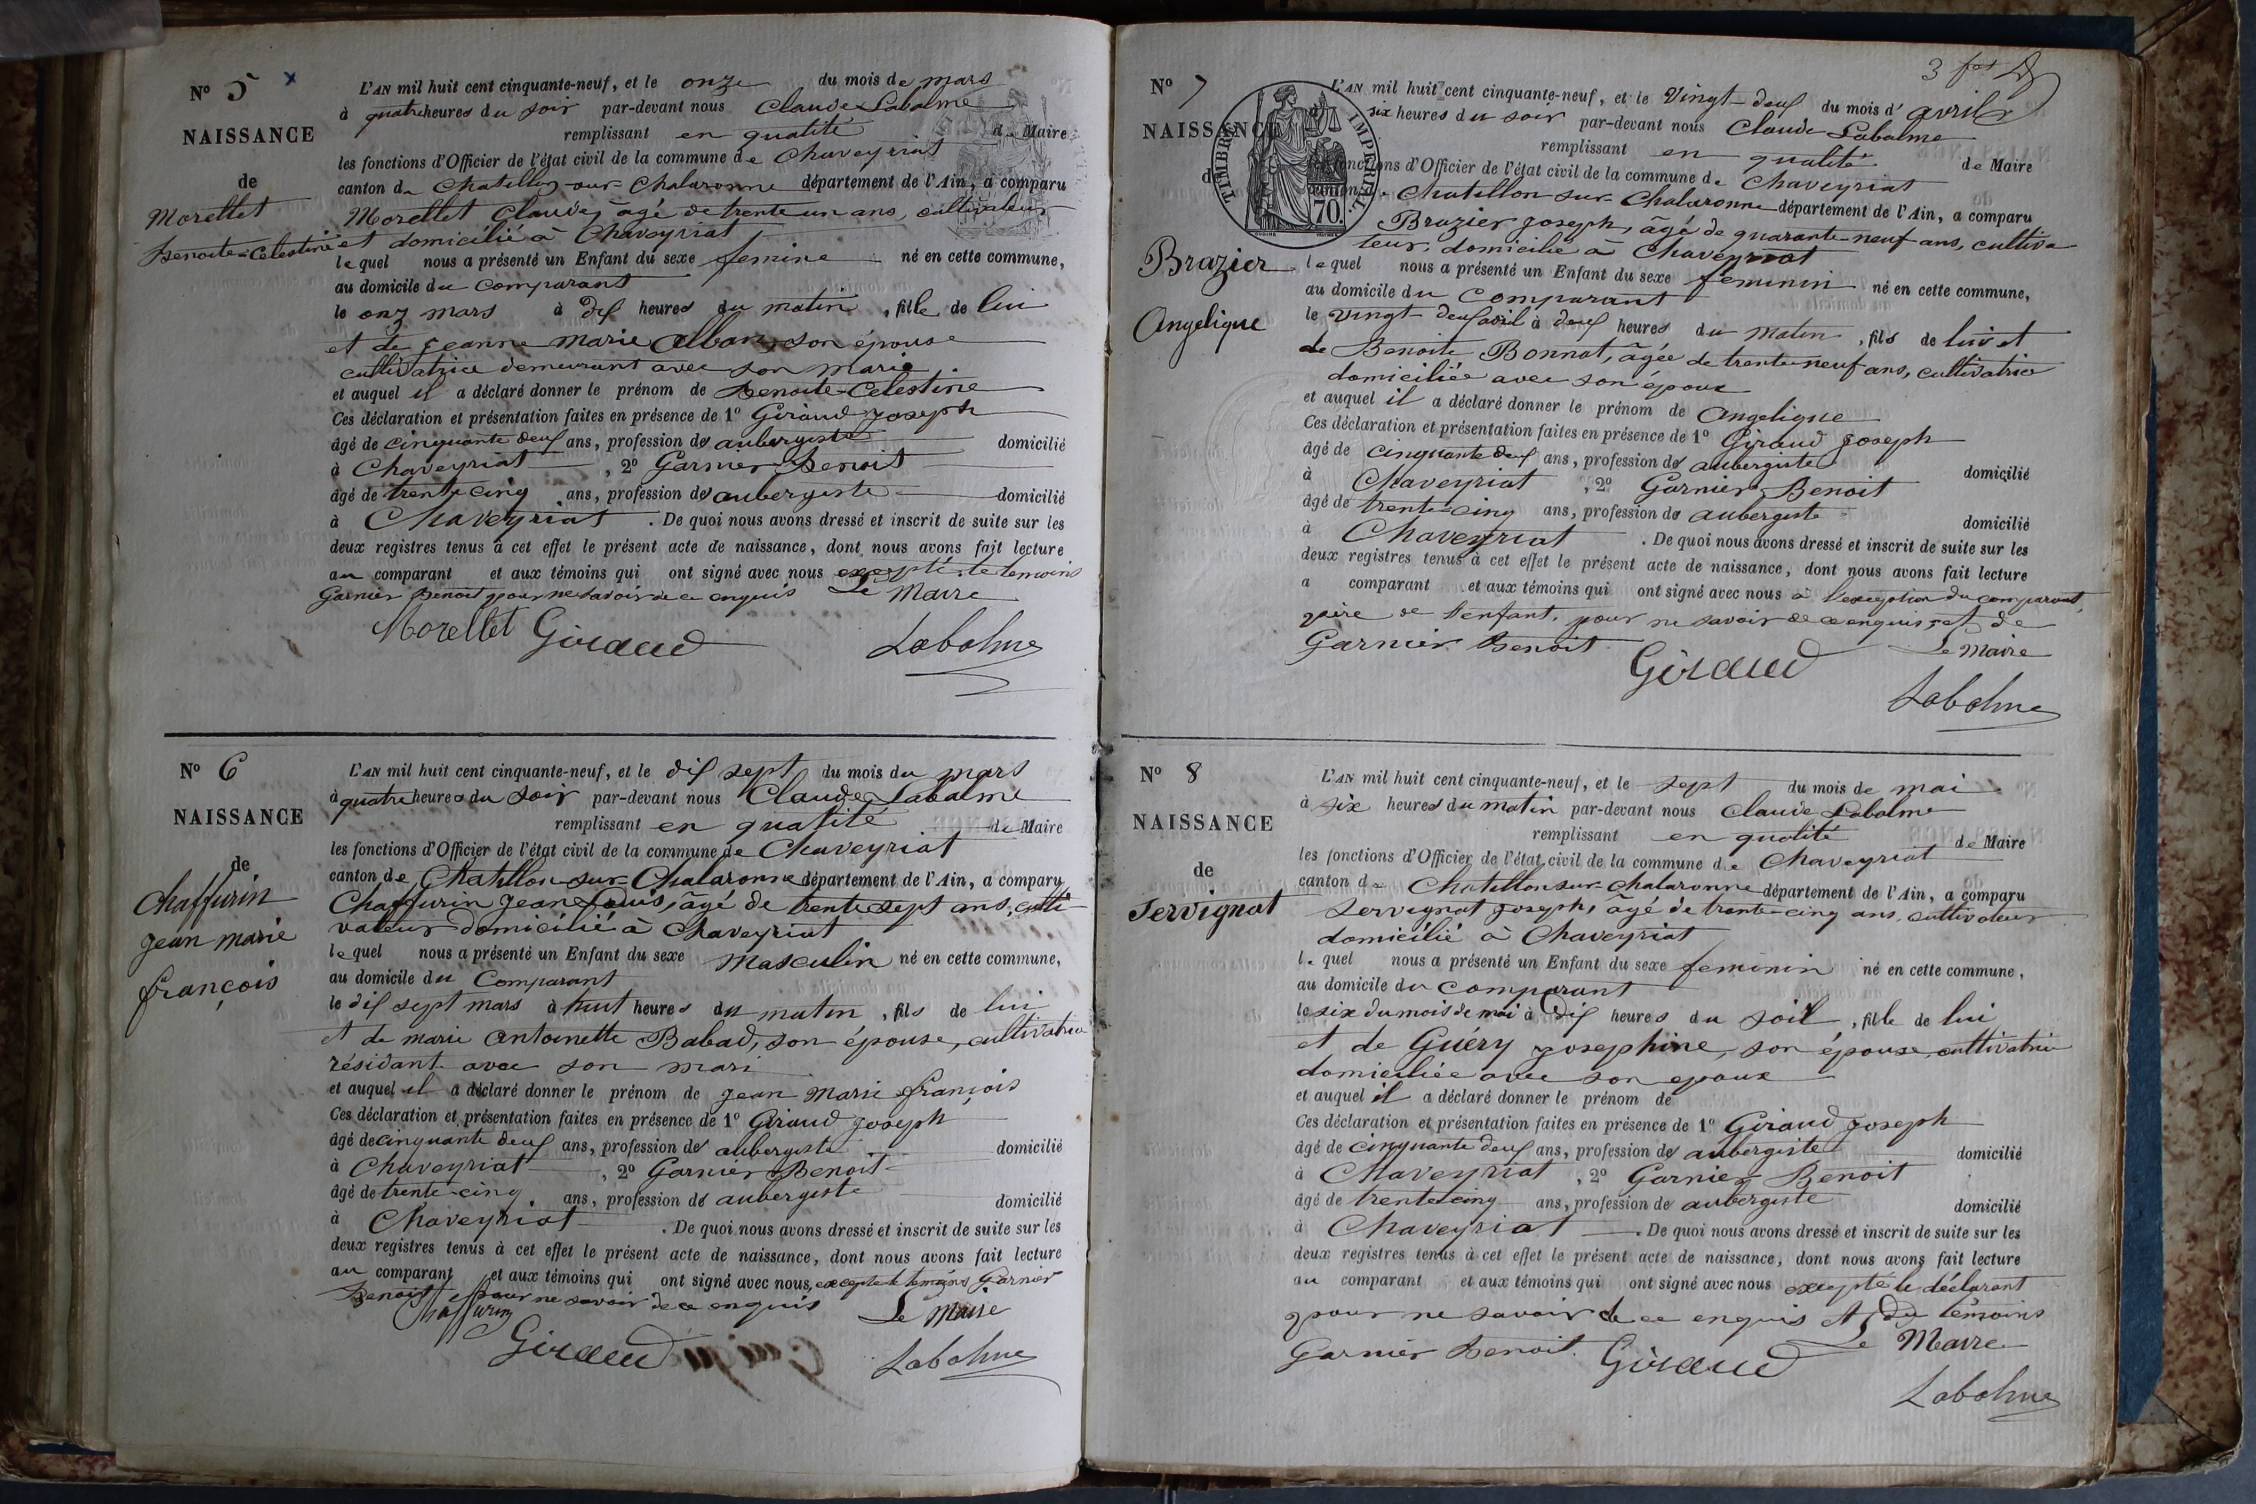 N° 5 x
NAISSANCE
de
Morellet
Benoite-Celestine
L'AN mil huit cent cinquante-neuf, et le onze du mois de mars
à quatre heures du soir par-devant nous Claude Labalme
remplissant en qualité de Maire
les fonctions d'Officier de l'état civil de la commune de Chaveyriat
canton de Chatillon-sur-Chalaronne département de l'Ain, a comparu
Morellet Claude, âgé de trente un ans, cultivateur
et domicilié à Chaveyriat
lequel nous a présenté un Enfant du sexe feminine né en cette commune,
au domicile du comparant
le onz mars à dix heures du matin, fille de lui
et de Jeanne marie Alban, son épouse
cultivatrice demeurant avec son marie
et auquel il a déclaré donner le prénom de Benoite-Celestine
Ces déclaration et présentation faites en présence de 1° Giraud Joseph
âgé de cinquante deux ans, profession de aubergiste domicilié
à Chaveyriat, 2° Garnier Benoit
âgé de trente cinq ans, profession de aubergiste domicilié
à Chaveyriat. De quoi nous avons dressé et inscrit de suite sur les
deux registres tenus à cet effet le présent acte de naissance, dont nous avons fait lecture
au comparant et aux témoins qui ont signé avec nous excepté le temoins
Garnier Benoit pour ne savoir de ce enquis Le Maire
Morellet Giraud Labalme
N° 6
NAISSANCE
de
Chaffurin
jean marie
françois
L'AN mil huit cent cinquante-neuf, et le dix sept du mois du mars
à quatre heures du soir par-devant nous Claude Labalme
remplissant en qualité de Maire
les fonctions d'Officier de l'état civil de la commune de Chaveyriat
canton de Chatillon-sur-Chalaronne département de l'Ain, a comparu
Chaffurin Jean Louis, âgé de trente sept ans, culti-
vateur domicilié à Chaveyriat
lequel nous a présenté un Enfant du sexe Masculin né en cette commune,
au domicile du Comparant
le dix sept mars à huit heures du matin, fils de lui
et de marie Antoinette Babad, son épouse, cultivatrice
résidant avec son mari
et auquel il a déclaré donner le prénom de jean Marie françois
Ces déclaration et présentation faites en présence de 1° Giraud Joseph
âgé de cinquante deux ans, profession de aubergiste domicilié
à Chaveyriat, 2° Garnier Benoit
âgé de trente-cinq ans, profession de aubergiste domicilié
à Chaveyriat. De quoi nous avons dressé et inscrit de suite sur les
deux registres tenus à cet effet le présent acte de naissance, dont nous avons fait lecture
au comparant et aux témoins qui ont signé avec nous, excepte le temoins Garnier
Benoit pour ne savoir de ce enquis Le Maire
Chaffurin
Giraud Labalme
3
N° 7
NAISSANCE
de
Brazier
Angelique
TIMBRE IMPERIAL
70
L'AN mil huit cent cinquante-neuf, et le Vingt-deux du mois d'avril
à six heures du soir par-devant nous Claude Labalme
remplissant en qualité de Maire
les fonctions d'Officier de l'état civil de la commune de Chaveyriat
canton Chatillon sur Chalaronne département de l'Ain, a comparu
Brazier Joseph, âgé de quarante-neuf ans, cultiva
teur, domicilié à Chaveyriat
lequel nous a présenté un Enfant du sexe feminin né en cette commune,
au domicile du comparant
le vingt deux avril à deux heures du matin, fils de lui et
de Benoite Bonnat, âgée de trente neuf ans, cultivatrice
domiciliée avec son époux
et auquel il a déclaré donner le prénom de Angelique
Ces déclaration et présentation faites en présence de 1° Giraud Joseph
âgé de cinquante deux ans, profession de aubergiste domicilié
à Chaveyriat, 2° Garnier Benoit
âgé de trente-cinq ans, profession de aubergiste domicilié
à Chaveyriat. De quoi nous avons dressé et inscrit de suite sur les
deux registres tenus à cet effet le présent acte de naissance, dont nous avons fait lecture
a comparant et aux témoins qui ont signé avec nous à l'exception du comparant,
père de l'enfant, pour ne savoir de ce enquis, et de
Garnier Benoit Le Maire
Giraud
Labalme
N° 8
NAISSANCE
de
Servignat
L'AN mil huit cent cinquante-neuf, et le sept du mois de mai
à six heures du matin par-devant nous Claude Labalme
remplissant en qualité de Maire
les fonctions d'Officier de l'état civil de la commune de Chaveyriat
canton de Chatillon sur Chalaronne département de l'Ain, a comparu
Servignat Joseph, âgé de trente-cinq ans, cultivateur
domicilié à Chaveyriat
lequel nous a présenté un Enfant du sexe feminin né en cette commune,
au domicile du comparant
le six du mois de mai à Dix heures du soir, fille de lui
et de Guéry Josephine, son épouse, cultivatrice
domiciliée avec son epoux
et auquel il a déclaré donner le prénom de
Ces déclaration et présentation faites en présence de 1° Giraud Joseph
âgé de cinquante deux ans, profession de aubergiste domicilié
à Chaveyriat, 2° Garnier Benoit
âgé de trente cinq ans, profession de aubergiste domicilié
à Chaveyriat. De quoi nous avons dressé et inscrit de suite sur les
deux registres tenus à cet effet le présent acte de naissance, dont nous avons fait lecture
au comparant et aux témoins qui ont signé avec nous excepté le déclarant
pour ne savoir de ce enquis et du témoins
Garnier Benoit. Le Maire
Giraud
Labalme